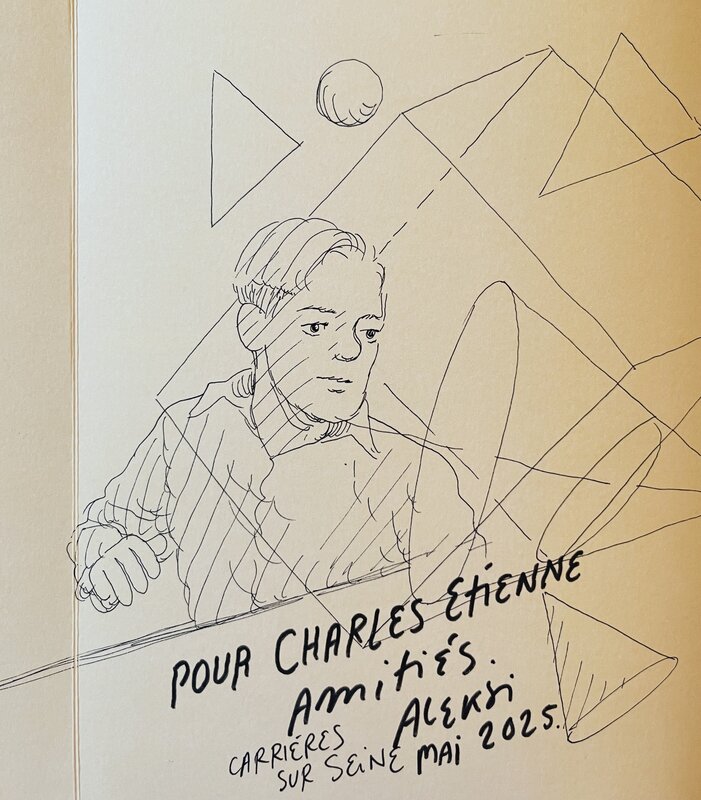 POUR CHARLES ETIENNE
AMITIÉS.
ALEKSI
CARRIÈRES
SUR SEINE MAI 2025.